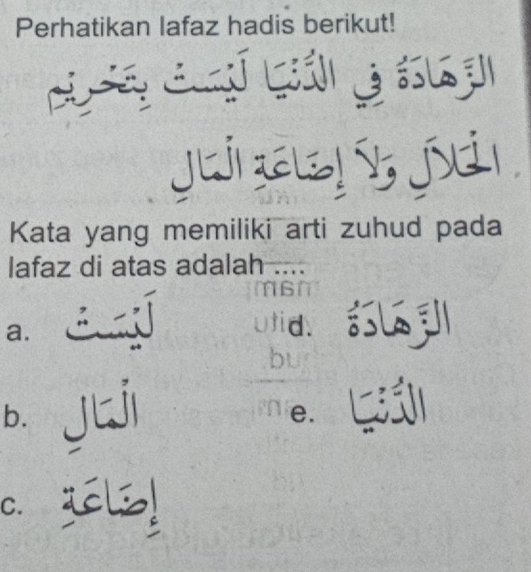 Perhatikan lafaz hadis berikut!
الزَّهَادَةُ فِي الدُّنْيَا لَيْسَتْ بِتَحْرِيْمِ
الْحَلَالِ وَلَا إِضَاعَةِ الْمَالِ
Kata yang memiliki arti zuhud pada
lafaz di atas adalah ....
a. لَيْسَتْ
d. الزَّهَادَةُ
b. الْمَالِ
e. الدُّنْيَا
c. إِضَاعَةِ